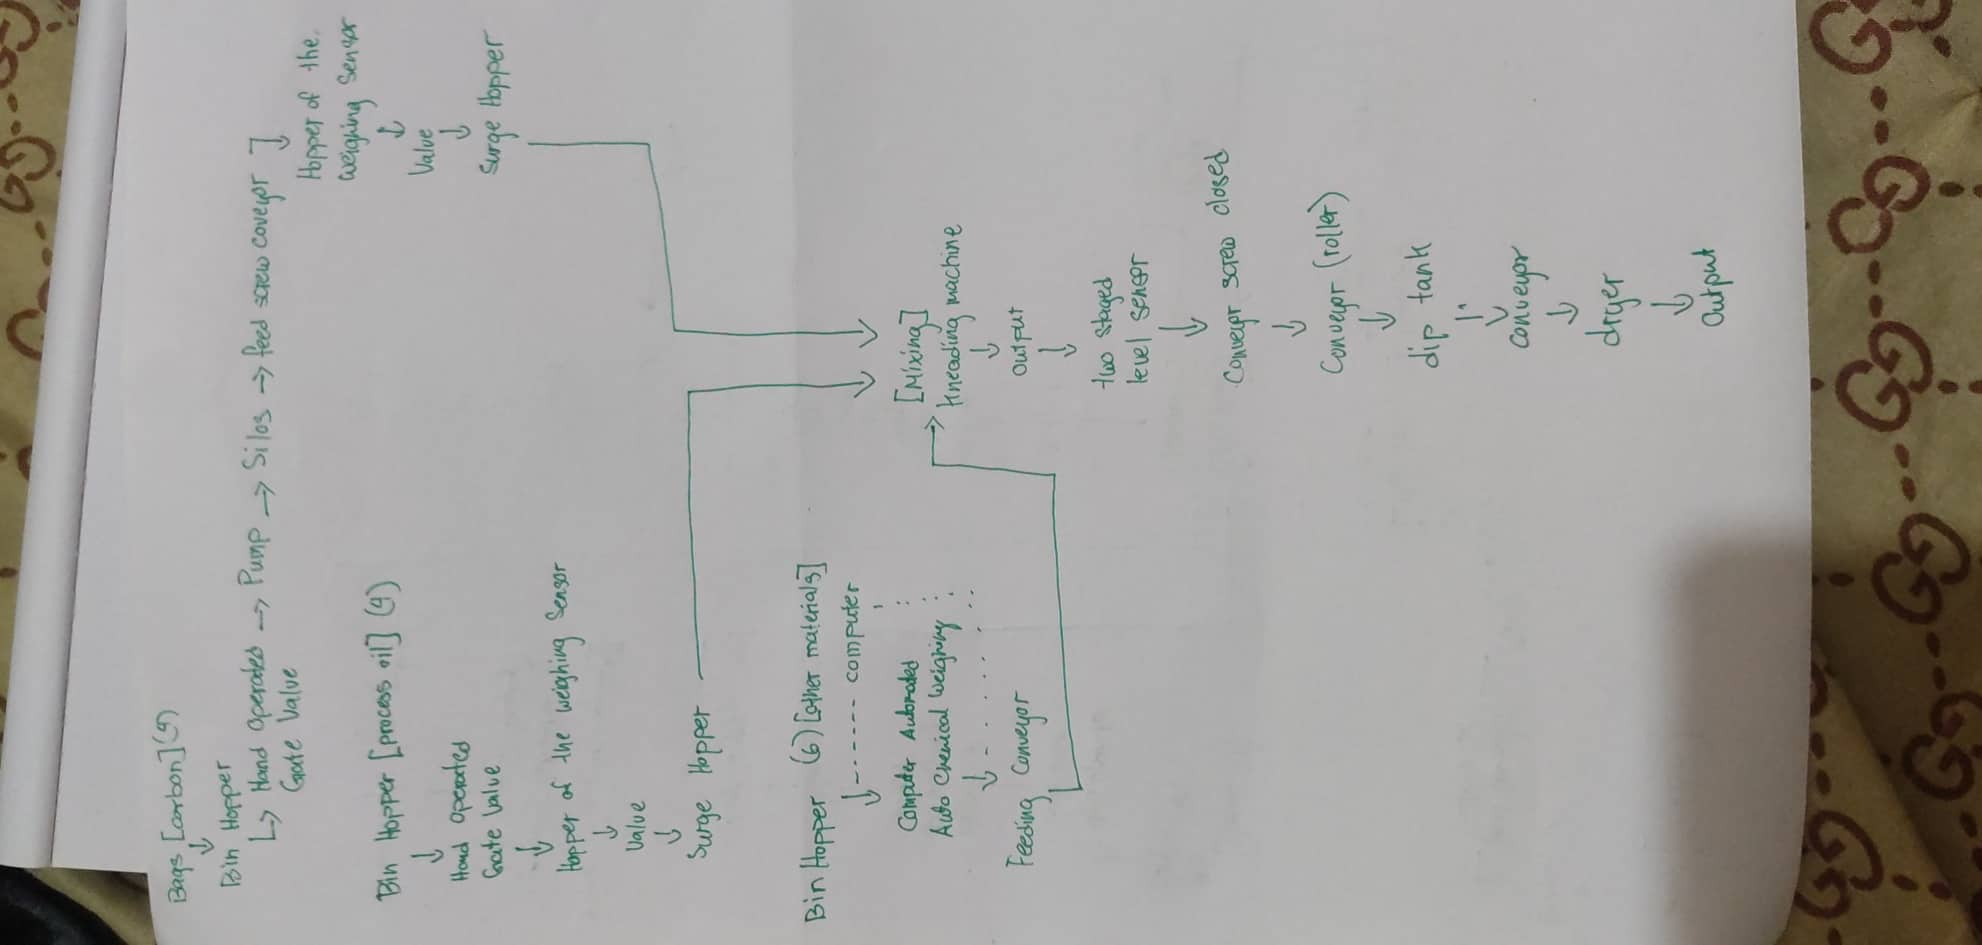 Bags [carbon] (4)
Bin Hopper
↳ Hand Operated → Pump → Silos → feed screw coveyor ]
Gate Valve
Hopper of the
weighing Sensor
Valve
Surge Hopper
Bin Hopper [process oil] (4)
Hand Operated
Gate Valve
Hopper of the weighing Sensor
Valve
Surge Hopper
Bin Hopper (6) [other materials]
computer
Computer Automated
Auto Chemical Weighing
Feeding Conveyor
[Mixing]
kneading machine
Output
two staged
level sensor
Conveyor screw closed
Conveyor (roller)
dip tank
conveyor
dryer
Output